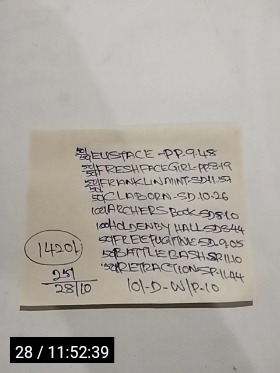 50/50 EUSTACE-PP.9.48
50/50 FRESHFACEGIRL-PP.8-19
50/50 FRANKLINAINT-SD.11.57
50 CLABORN-SD.10-26
100 ARCHERS BOOK-SD8.10
100 HOLDENBY HALL-SD8.44
50 FREEFUGITIVE-SD-9.05
50 BATTLEBASH-SP.11.10
50 RETRACTION SP-11.44
10/-D-W/P-10
1420/
25/
28/10
28 / 11:52:39